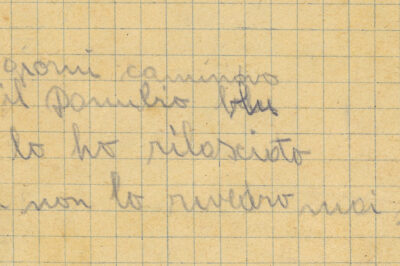 giorni cammino
il Danubio blu
lo ho rilasciato
non lo rivedro mai